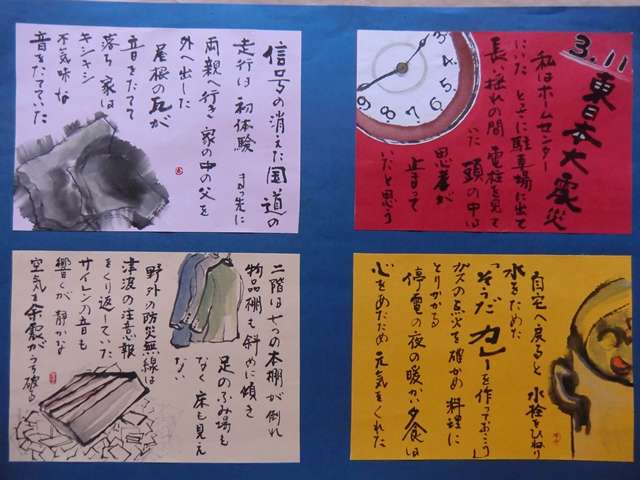 3.11
東日本大震災
私はホームセンター
にいた とっさに駐車場に出て
長い揺れの間 電柱を見て
いた 頭の中は
思考が
止まって
いたと思う
3 4 5 6 7 8 9
信号の消えた国道の
走行は初体験 まっ先に
両親へ行き 家の中の父を
外へ出した
屋根の瓦が
音をたてて
落ち 家は
キシキシ
不気味な
音をたてていた
自宅へ戻ると 水栓をひねり
水をためた
「そうだ カレーを作っておこう」
ガスの点火を確かめ 料理に
とりかかる
停電の夜の暖かい夕食は
心をあたため 元気をくれた
二階は七つの本棚が倒れ
物品棚も斜めに傾き
足のふみ場も
なく 床も見え
ない
野外の防災無線は
津波の注意報
をくり返していた
サイレンの音も
響くが 静かな
空気を余震がうち破る